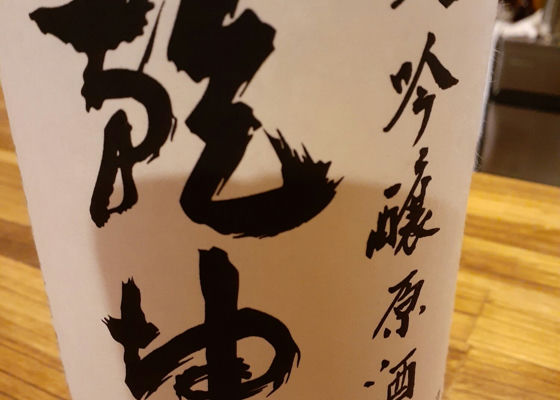 吟醸原酒
乾坤